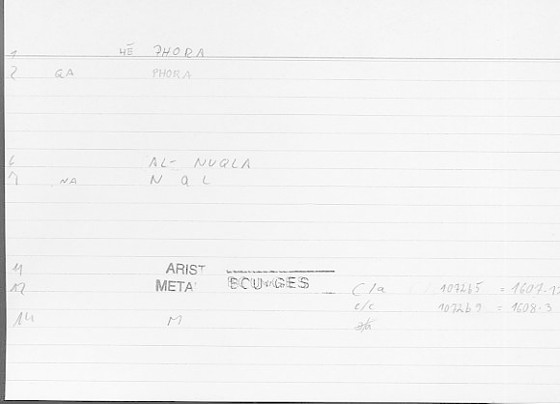 1 HĒ PHORA
2 QA PHORA
6 AL- NUQLA
7 NA N Q L
11 ARIST
12 META BOUYGES C/a 107265 = 1607-12
c/c 107269 = 1608-3
14 M